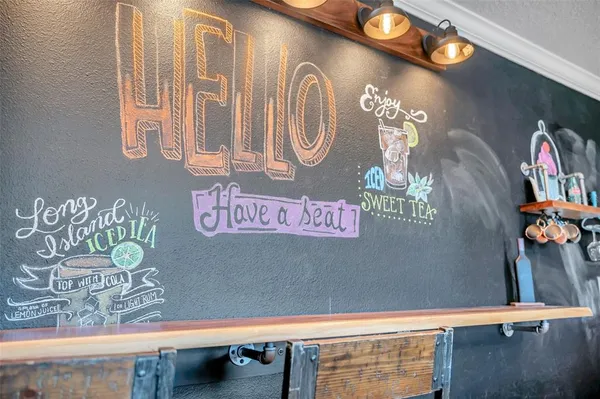 HELLO
Have a Seat!
Enjoy
ICED
SWEET TEA
Long
Island
ICED TEA
TOP WITH COLA
SPLASH OF
LEMON JUICE
1 oz LIGHT RUM